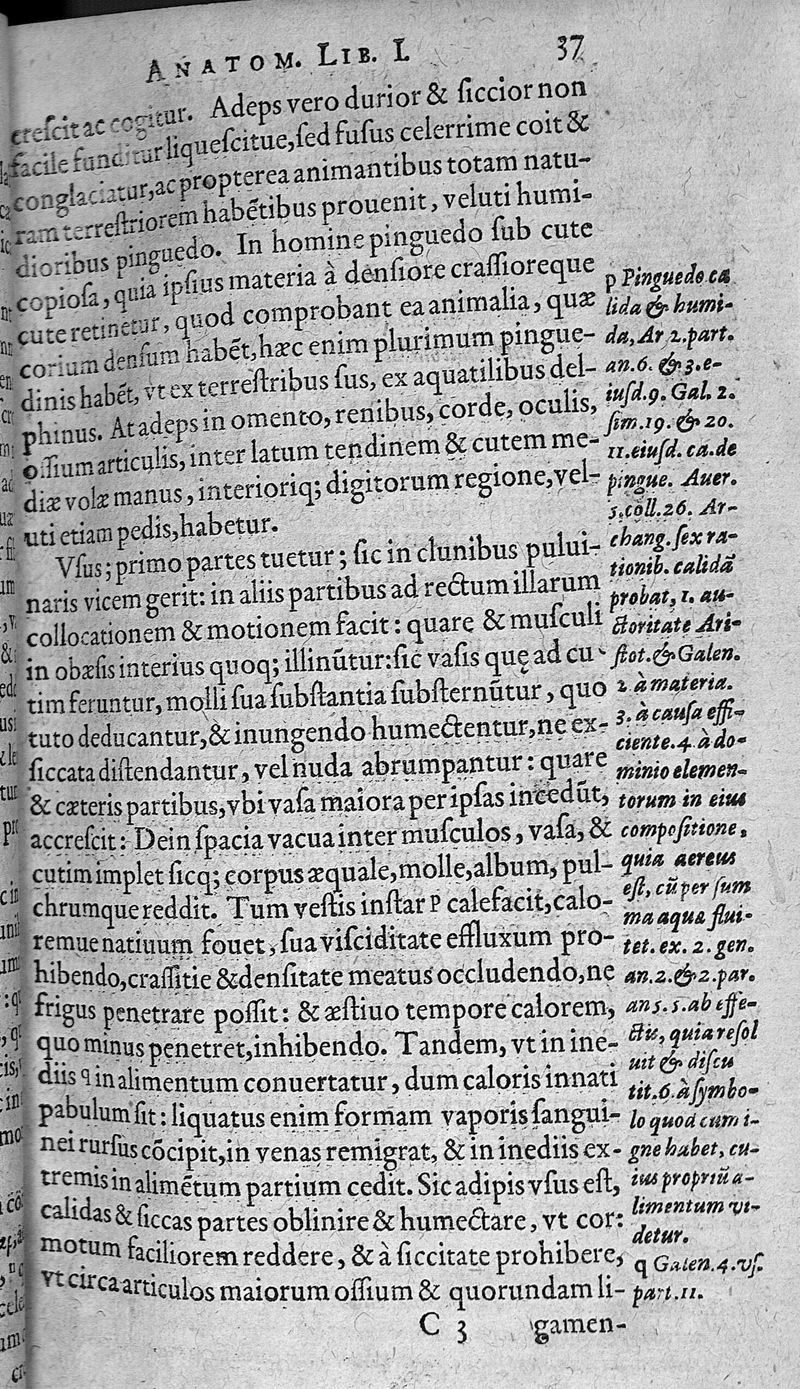 ANATOM. LIB. I. 37
creſcit ac cogitur. Adeps vero durior & ſiccior non
facile funditur liqueſcitue, ſed fuſus celerrime coit &
conglaciatur, ac propterea animantibus totam natu-
ram terreſtriorem habẽtibus prouenit, veluti humi-
dioribus pinguedo. In homine pinguedo ſub cute
copioſa, quia ipſius materia à denſiore craſſioreque
cute retinetur, quod comprobant ea animalia, quæ
corium denſum habẽt, hæc enim plurimum pingue-
dinis habẽt, vt ex terreſtribus ſus, ex aquatilibus del-
phinus. At adeps in omento, renibus, corde, oculis,
oſſium articulis, inter latum tendinem & cutem me-
diæ volæ manus, interioriq; digitorum regione, vel-
uti etiam pedis, habetur.
Vſus; primo partes tuetur; ſic in clunibus pului-
naris vicem gerit: in aliis partibus ad rectum illarum
collocationem & motionem facit: quare & muſculi
in obæſis interius quoq; illinũtur: ſic vaſis quę ad cu-
tim feruntur, molli ſua ſubſtantia ſubſternũtur, quo
tuto deducantur, & inungendo humectentur, ne ex-
ſiccata diſtendantur, vel nuda abrumpantur: quare
& cæteris partibus, vbi vaſa maiora per ipſas incedũt,
accreſcit: Dein ſpacia vacua inter muſculos, vaſa, &
cutim implet ſicq; corpus æquale, molle, album, pul-
chrumque reddit. Tum veſtis inſtar p calefacit, calo-
remue natiuum fouet, ſua viſciditate effluxum pro-
hibendo, craſſitie & denſitate meatus occludendo, ne
frigus penetrare poſſit: & æſtiuo tempore calorem,
quo minus penetret, inhibendo. Tandem, vt in ine-
diis q in alimentum conuertatur, dum caloris innati
pabulum ſit: liquatus enim formam vaporis ſangui-
nei rurſus cõcipit, in venas remigrat, & in inediis ex-
tremis in alimẽtum partium cedit. Sic adipis vſus eſt,
calidas & ſiccas partes oblinire & humectare, vt cor:
motum faciliorem reddere, & à ſiccitate prohibere,
vt circa articulos maiorum oſſium & quorundam li-
C 3 gamen-
p Pinguedo ca
lida & humi-
da, Ar 2. part.
an. 6. & 3. e-
iuſd. 9. Gal. 2.
ſim. 19. & 20.
11. eiuſd. ca. de
pingue. Auer.
5. coll. 26. Ar-
chang. ſex ra-
tionib. calidã
probat, 1. au-
ctoritate Ari-
ſtot. & Galen.
2. à materia.
3. à cauſa effi-
ciente. 4. à do-
minio elemen-
torum in eius
compoſitione,
quia aereus
eſt, cũ per ſum
ma aqua flui-
tet. ex. 2. gen.
an. 2. & 2. par.
an 5. 5. ab effe-
ctu, quia reſol
uit & diſcu
tit. 6. à ſymbo-
lo quod cum i-
gne habet, cu-
ius propriũ a-
limentum vi-
detur.
q Galen. 4. vſ.
part. 11.